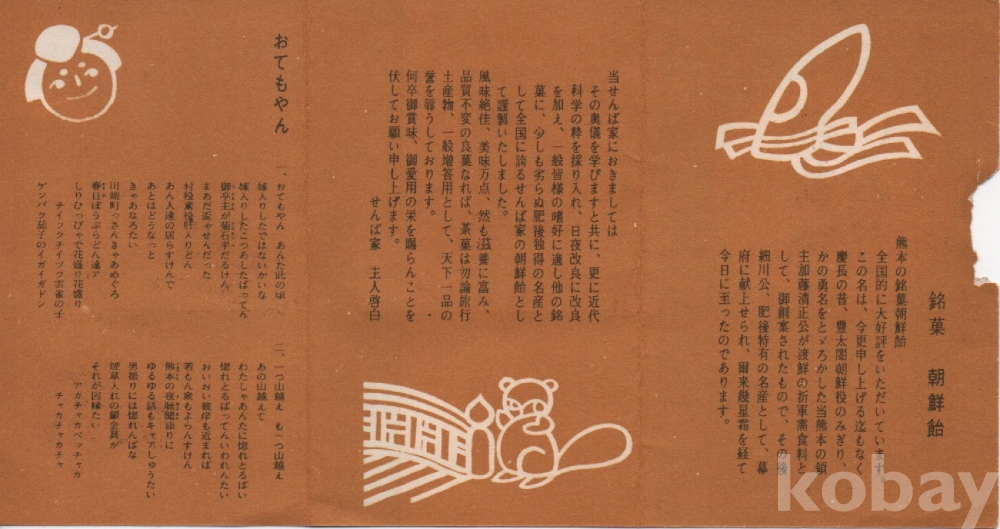 銘菓 朝鮮飴
熊本の銘菓朝鮮飴
全国的に大好評をいただいています
この名は、今更申し上げる迄もなく
慶長の昔、豊太閤朝鮮役のみぎり、
かの勇名をとゞろかした当熊本の領
主加藤清正公が渡鮮の折軍需食料と
して、御創案されたもので、その後
細川公、肥後特有の名産として、幕
府に献上せられ、爾来幾星霜を経て
今日に至ったのであります。
当せんば家におきましては
その奥儀を学びますと共に、更に近代
科学の粋を採り入れ、日夜改良に改良
を加え、一般皆様の嗜好に適し他の銘
菓に、少しも劣らぬ肥後独得の名産と
して全国に誇るせんば家の朝鮮飴とし
て謹製いたしました。
風味絶佳、美味万点、然も滋養に富み、
品質不変の良菓なれば、茶菓は勿論旅行
土産物、一般増答用として、天下一品の
誉を辱うしております。
何卒御賞味、御愛用の栄を賜らんことを
伏してお願い申し上げます。
せんば家 主人啓白
おてもやん
一、おてもやん あんた此の頃
嫁入りしたではないかいな
嫁入りしたこつあしたばってん
御卒主が菊石平だるけん
まあだ盃ゃせんだった
村役鳶役肝入りどん
あん人達の居らすけんで
あとはどうなっと
きゃあなろたい
川端町っさんきゃあめぐろ
春日ぼうぶらどん達ァ
しりひっぴゃで花盛り花盛り
チイツクチイツク雲雀の子
ゲンバク茄子のイガイガドン
二、一つ山越え も一つ山越え
あの山越えて
わたしゃあんたに惚れとるばい
惚れとるばってんいいわれんたい
おいおい彼岸も近まれば
若もん衆もよらんすけん
熊本の夜聴聞詣りに
ゆるゆる話もキャアしゅうたい
男振りには惚れんばな
煙草入れの銀金具が
それが因縁たい
アカチャカベッチャカ
チャカチャカチャ
kobay